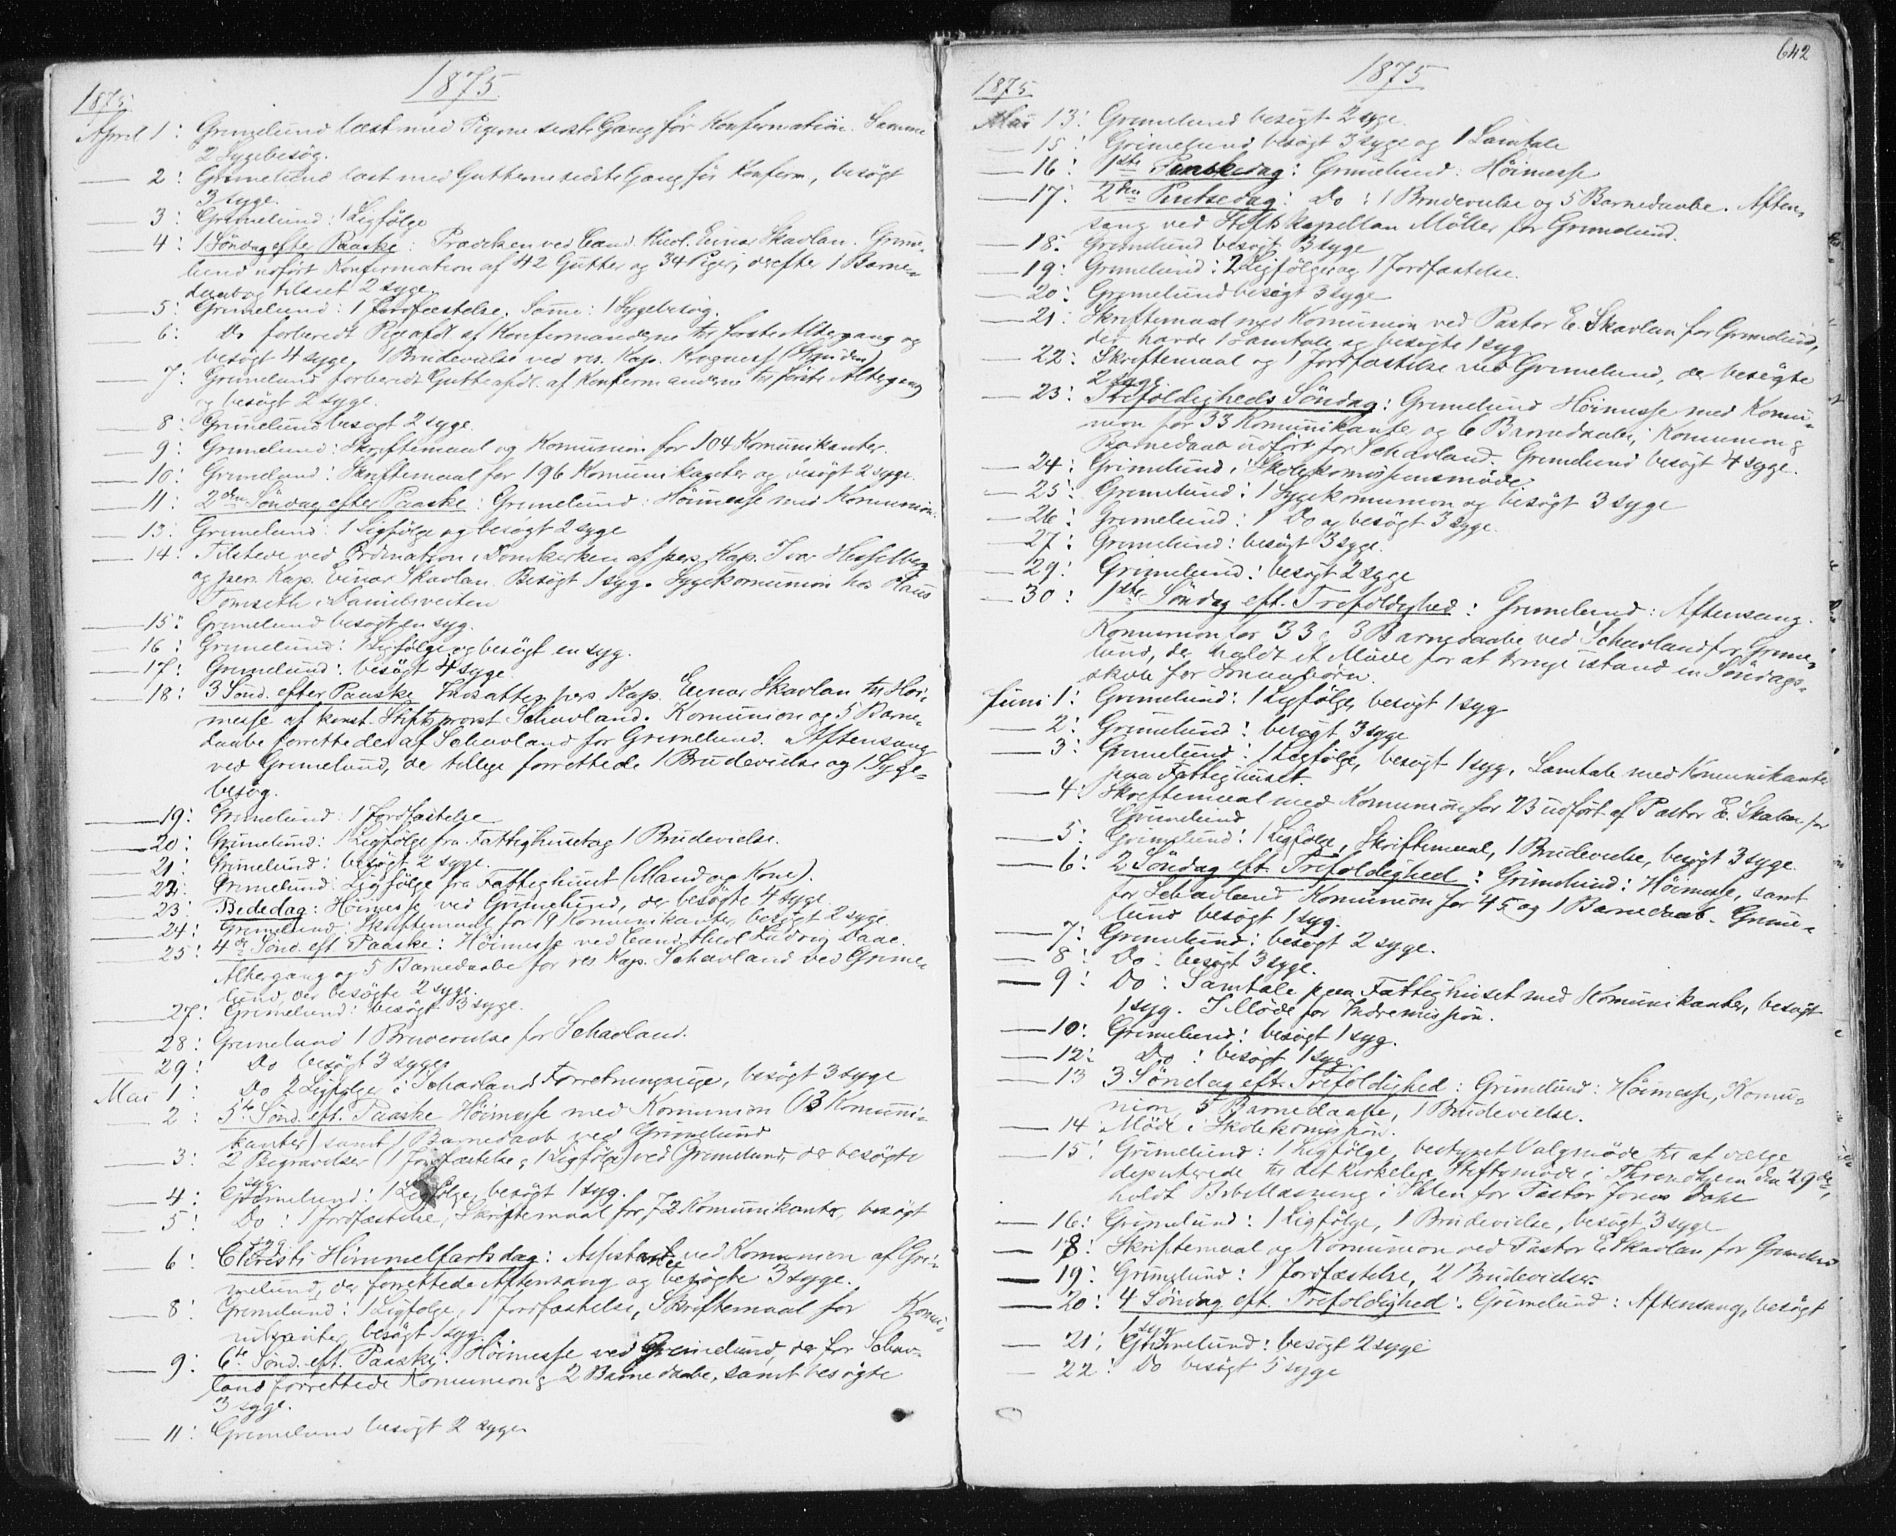 1875
1875
April 1: Grimelund læst med Pigerne sidste Gang før Konfirmation. Samme
2 Sygebesøg.
2: Grimelund læst med Gutterne sidste Gang før Konfirm, besøgt
3 syge.
3: Grimelund: 1 Ligfölge
4: 1 Söndag efter Paaske: Prædiken ved Cand. theol. Einar Skavlan. Grime-
lund udfört Konfirmation af 42 Gutter og 34 Piger, derefter 1 Barne-
daab og tilseet 2 syge.
5: Grimelund: 1 Jordfæstelse. Samme: 1 Sygebesög.
6: Do forberedt Pigeafdl. af Konfirmanderne til förste Altergang og
besögt 4 syge. 1 Brudevielse ved res. Kap. Rognes
7: Grimelund forberedt Gutteafdl. af Konfirmanderne til förste Altergang
og besøgt 2 syge.
8: Grimelund besøgt 2 syge.
9: Grimelund: Skriftemaal og Komunion for 104 Komunikanter.
10: Grimelund: Skriftemaal for 196 Komunikanter og besøgt 2 syge.
11: 2den Söndag efter Paaske: Grimelund: Höimesse med Komunion.
13: Grimelund: 1 Ligfölge og besøgt 2 syge
14: Tilstede ved Ordination i Domkirken af pers. Kap. Ivar Hesselberg
og pers. Kap. Einar Skavlan. Besögt 1 syg. Sygekomunion hos Hans
Tomseth i Danielsveiten
15: Grimelund besøgt en syg.
16: Grimelund: 1 Ligfölge og besøgt en syg.
17: Grimelund: besøgt 4 syge
18: 3 Sönd. efter Paaske Indsattes pers Kap. Einar Skavlan til Höi-
messe af konst. Stiftsprovst Schavland. Komunion og 5 Barne-
daabe forrettedes af Schavland for Grimelund. Aftensang
ved Grimelund, der tillige forrettede 1 Brudevielse og 1 Syge-
besög.
19: Grimelund: 1 Jordfæstelse
20: Grimelund: 1 Ligfölge fra Fattighuset og 1 Brudevielse.
21: Grimelund: besøgt 2 syge.
22: Grimelund: Ligfölge fra Fattighuset (Mand og Kone).
23: Bededag: Höimesse ved Grimelund, der besøgte 4 syge
24: Grimelund: Skriftemaal for 19 Komunikanter, besøgt 2 syge.
25: 4de Sönd. eft Paaske: Höimesse ved Cand. theol Ludvig Daae.
Altergang og 5 Barnedaabe for res Kap. Schavland ved Grime-
lund, der besøgte 2 syge.
27: Grimelund: besøgt 3 syge.
28: Grimelund 1 Brudevielse for Schavland.
29: Do besøgt 3 syge
Mai 1: Do 2 Ligfölge i Schavlands Forretningsuge, besøgt 3 syge
2: 5te Sönd. eft. Paaske Höimesse med Komunion (3 Komuni-
kanter) samt 1 Barnedaab ved Grimelund
3: 2 Begravelser (1 Jordfæstelse, 1 Ligfölge) ved Grimelund, der besøgte
1 syg.
4: Grimelund: 1 Ligfölge, besøgt 1 syg.
5: Do: 1 Jordfæstelse, Skriftemaal for 72 Komunikanter, besøgt
1 syg
6: Christi Himmelfartsdag: Assistance ved Komunion af Gri-
melund, der forrettede Aftensang og besøgte 3 syge.
8: Grimelund: 1 Ligfölge, 1 Jordfæstelse, Skriftemaal for Komu-
nikanter, besøgt 1 syg.
9: 6te Sönd. eft. Paaske: Höimesse ved Grimelund, der for Schav-
land forrettede Komunion & 2 Barnedaabe, samt besøgte
3 syge.
11: Grimelund besøgt 2 syge
642
1875
1875
Mai 13: Grimelund besøgt 2 syge.
15: Grimelund besøgt 3 syge og 1 Samtale
16: 1ste Pinsedag: Grimelund: Höimesse
17: 2den Pintsedag: Do: 1 Brudevielse og 5 Barnedaabe. Aften-
sang ved Stiftskapellan Möller for Grimelund.
18: Grimelund besøgt 3 syge
19: Grimelund: 2 Ligfölge og 1 Jordfæstelse.
20: Grimelund besøgt 3 syge
21: Skriftemaal med Komunion ved Pastor E. Skavlan for Grimelund,
der havde 1 Samtale og besøgte 1 syg
22: Skriftemaal og 1 Jordfæstelse ved Grimelund, der besøgte
2 syge.
23: Trefoldigheds Söndag: Grimelund Höimesse med Komu-
nion for 33 Komunikanter og 6 Barnedaabe; Komunion &
Barnedaab udfört for Schavland. Grimelund besøgt 4 syge.
24: Grimelund: Skolekomissionsmöde.
25: Grimelund: 1 Sygekomunion og besøgt 3 syge
26: Grimelund: 1 Do og besøgt 3 syge.
27: Grimelund: besøgt 3 syge.
29: Grimelund: besøgt 2 syge
30: 1ste Söndag eft. Trefoldighed: Grimelund: Aftensang.
Komunion for 33 & 3 Barnedaabe ved Schavland for Grime-
lund, der holdt et Möde for at bringe istand en Söndags-
skole for Smaabörn.
Juni 1: Grimelund: 1 Ligfölge, besøgt 1 syg
2: Grimelund: besøgt 3 syge
3: Grimelund: 1 Ligfölge, besøgt 1 syg, Samtale med Komunikanter
paa Fattighuset.
4: Skriftemaal med Komunion for 23 udført af Pastor E. Skavlan for
Grimelund
5: Grimelund: 1 Ligfölge, Skriftemaal, 1 Brudevielse, besøgt 3 syge
6: 2 Söndag eft. Trefoldighed: Grimelund: Höimesse, samt
for Schavland Komunion for 45 og 1 Barnedaab. Grime-
lund besøgt 1 syg.
7: Grimelund: besøgt 2 syge.
8: Do: besøgt 3 syge.
9: Do: Samtale paa Fattighuset med Komunikanter, besøgt
1 syg. I Möde for Indremission.
10: Grimelund: besøgt 1 syg.
12: Do: besøgt 1 syg.
13 3 Söndag eft. Trefoldighed: Grimelund: Höimesse, Komu-
nion, 5 Barnedaabe, 1 Brudevielse.
14 Möde i Skolekomission.
15: Grimelund: 1 Ligfölge, bestyret Valgmöde til at vælge
deputerede til det kirkelige Stiftsmöde i Throndhjem den 29de,
holdt Bibellæsning i Ihlen for Pastor Jonas Dahl
16: Grimelund: 1 Ligfölge, 1 Brudevielse, besøgt 3 syge
18: Skriftemaal og Komunion ved Pastor E. Skavlan for Grimelund
19: Grimelund: 1 Jordfæstelse, 2 Brudevielser
20: 4 Söndag eft. Trefoldighed: Grimelund: Aftensang, besøgt
1 syg
21: Grimelund: besøgt 2 syge
22: Do besøgt 5 syge